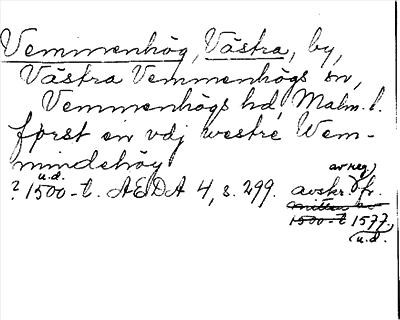 Vemmenhög, Västra, by,
Västra Vemmenhögs sn,
Vemmenhögs hd, Malm. l.
først en vdj westre Wem-
mindehög
u.d. av reg.)
? 1500-t. AEDA 4, s. 299. avskr. fr.
mitten av
1500-t 1577,
u.d.